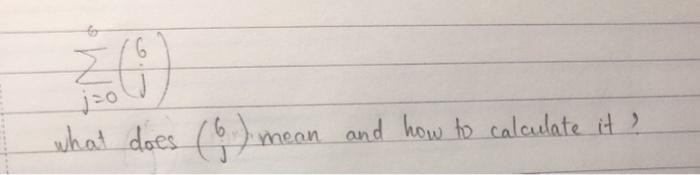 6
∑ (6 j)
j=0
what does (6 j) mean and how to calculate it ?